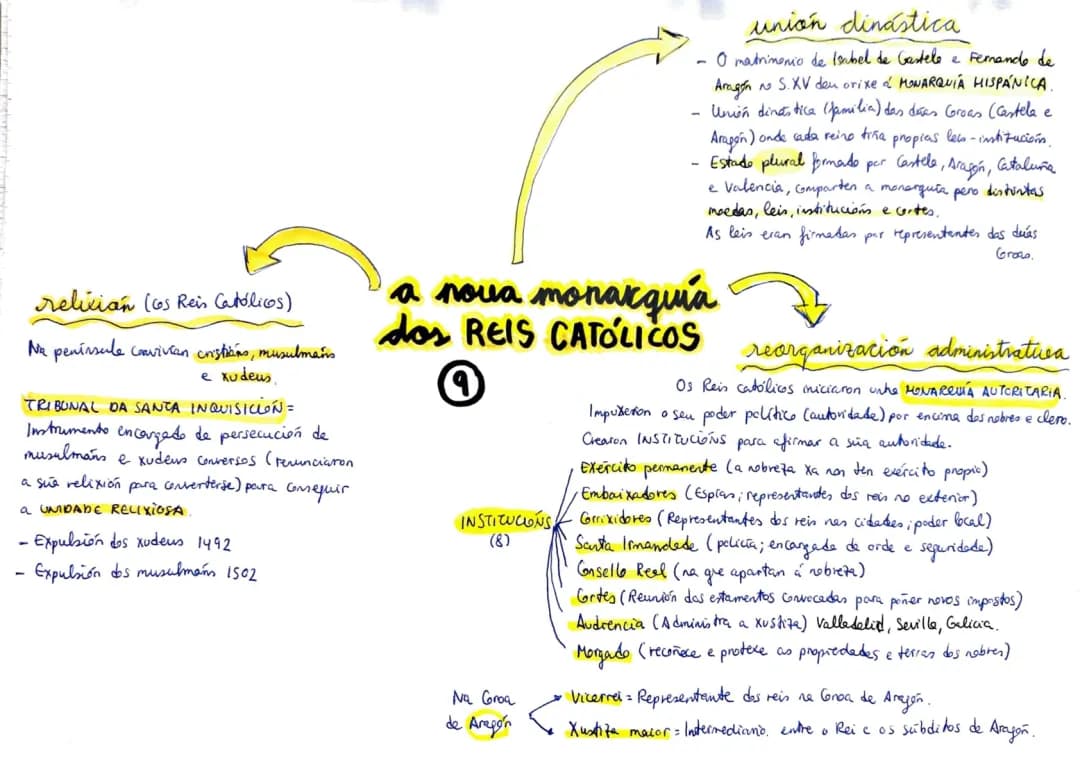 unión dinástica
- O matrimonio de Isabel de Castela e Fernando de
Aragón no S.XV deu orixe á MONARQUÍA HISPÁNICA.
- Unión dinástica (familia) das dúas Coroas (Castela e
Aragón) onde cada reino tiña propias leis - institucións.
- Estado plural formado por Castela, Aragón, Cataluña
e Valencia, comparten a monarquía pero distintas
moedas, leis, institucións e cortes.
As leis eran firmadas por representantes das dúas
Coroas.
a nova monarquía
dos REIS CATÓLICOS
9
relixión (cos Reis Católicos)
Na península convivían cristiáns, musulmáns
e xudeus.
TRIBUNAL DA SANTA INQUISICIÓN =
Instrumento encargado da persecución de
musulmáns e xudeus conversos (renunciaron
a súa relixión para converterse) para conseguir
a UNIDADE RELIXIOSA.
- Expulsión dos xudeus 1492
- Expulsión dos musulmáns 1502
reorganización administrativa
Os Reis católicos iniciaron unha MONARQUÍA AUTORITARIA.
Impuxeron o seu poder político (autoridade) por encima dos nobres e clero.
Crearon INSTITUCIÓNS para afirmar a súa autoridade.
INSTITUCIÓNS
(8)
Exército permanente (a nobreza xa non ten exército propio)
Embaixadores (Espías; representantes dos reis no exterior)
Correxidores (Representantes dos reis nas cidades; poder local)
Santa Irmandade (policía; encargada da orde e seguridade)
Consello Real (na que apartan á nobreza)
Cortes (Reunión dos estamentos convocadas para poñer novos impostos)
Audiencia (Administra a xustiza) Valladolid, Sevilla, Galicia.
Morgado (recoñece e protexe as propiedades e terras dos nobres)
Na Coroa
de Aragón
Vicerrei = Representante dos reis na Coroa de Aragón.
Xustiza maior = Intermediario entre o Rei e os súbditos de Aragón.